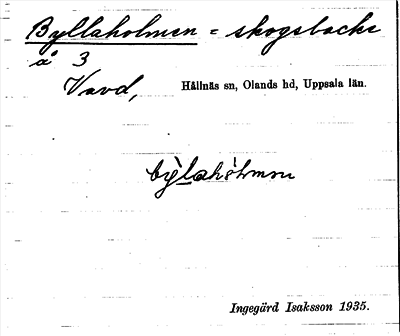 Byllaholmen = skogsbacke
å 3
Vavd,
Hållnäs sn, Olands hd, Uppsala län.
by̆laho̍lmen
Ingegärd Isaksson 1935.